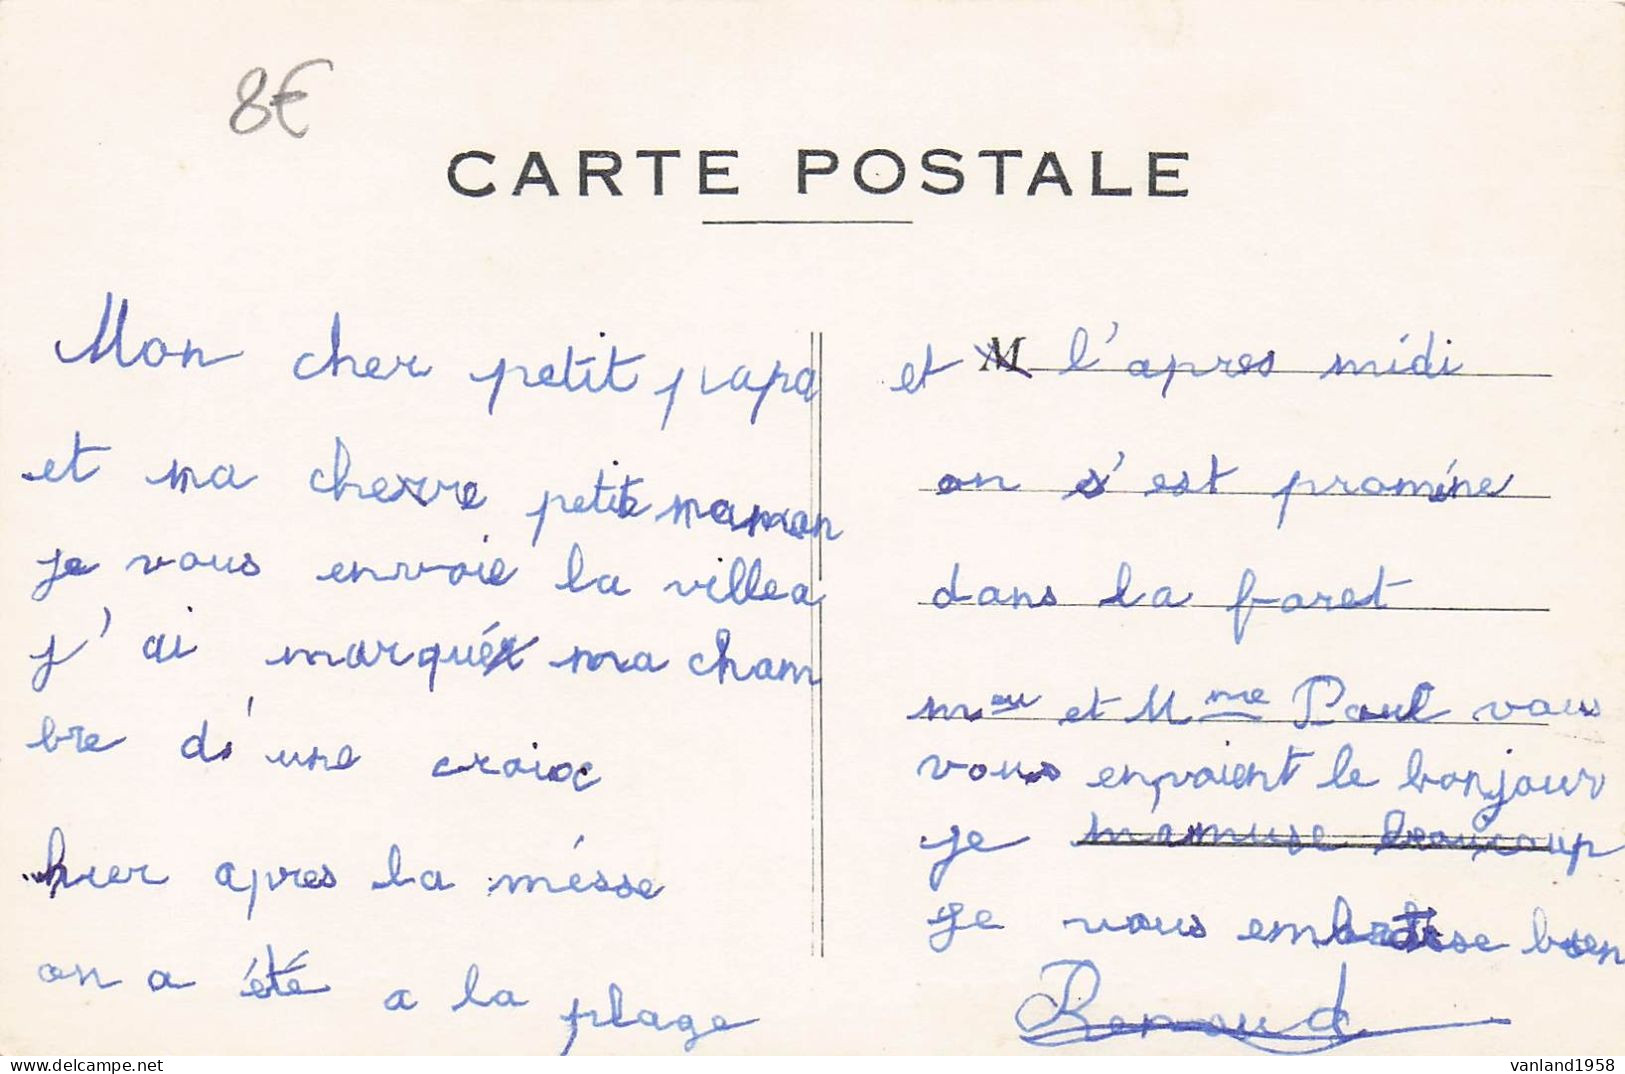 8€
CARTE POSTALE
Mon cher petit papa
et ma cherre petite maman
je vous envoie la villea
j'ai marqué ma cham
bre d'une croix
hier apres la mésse
on a été a la plage
et M l'apres midi
on s'est promíne
dans la foret
meu et Mme Paul vous
vous envoient le bonjour
je mamuse beaucoup
je vous embrasse bien
Renaud
www.delcampe.net
vanland1958